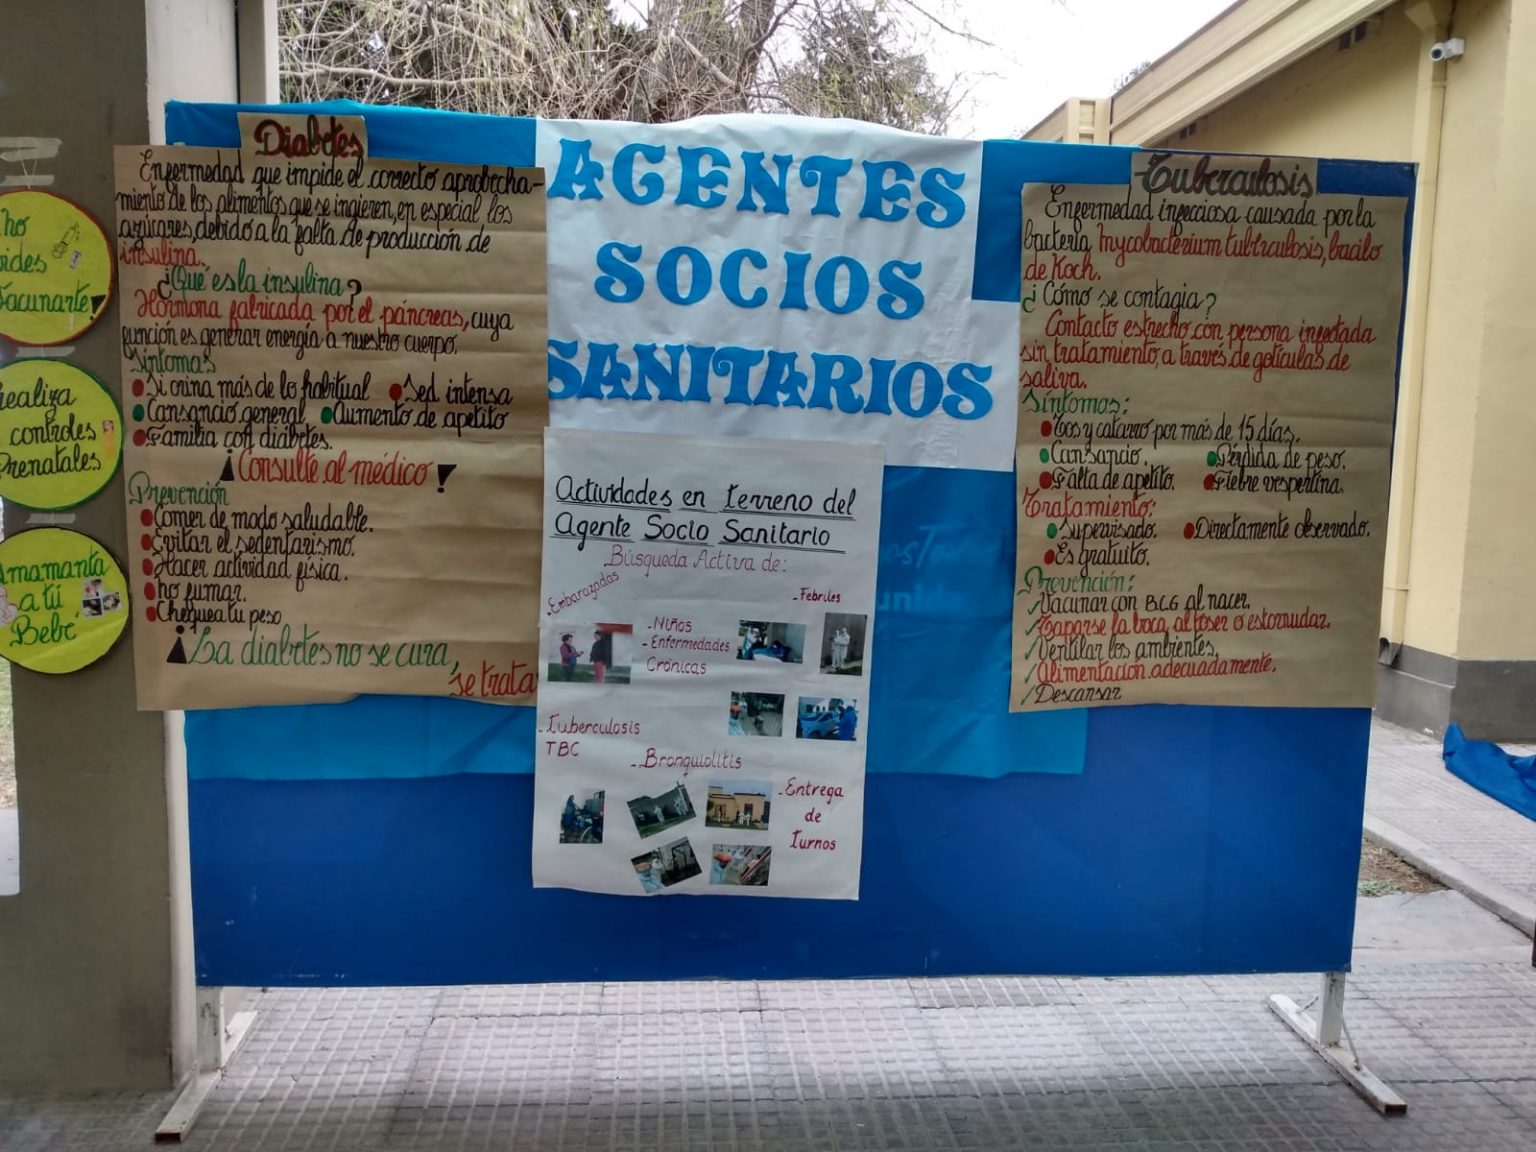 no
Vacunarte!
Realiza
controles
Prenatales
Amamanta
a tú
Bebé
Diabetes
Enfermedad que impide el correcto aprobecha-
miento de los alimentos que se ingieren, en especial los
azúcares, debido a la falta de producción de
insulina.
¿Qué es la insulina?
Hormona fabricada por el páncreas, cuya
función es generar energía a nuestro cuerpo.
Síntomas
Si orina más de lo habitual Sed intensa
Cansancio general Aumento de apetito
Familia con diábetes.
¡Consulte al médico!
Prevención
Comer de modo saludable.
Evitar el sedentarismo.
Hacer actividad física.
no fumar.
Chequea tu peso
¡La diabetes no se cura,
se trata
AGENTES
SOCIOS
SANITARIOS
Actividades en terreno del
Agente Socio Sanitario
Búsqueda Activa de:
-Embarazadas
-Febriles
-Niños
-Enfermedades
Crónicas
-Tuberculosis
TBC
-Bronquiolitis
-Entrega
de
Turnos
Tuberculosis
Enfermedad infecciosa causada por la
bacteria Mycobacterium tuberculosis, bacilo
de Koch.
¿Cómo se contagia?
Contacto estrecho con persona infectada
sin tratamiento, a través de gotículas de
saliva.
Síntomas:
Tos y catarro por más de 15 días.
Cansancio. Pérdida de peso.
Falta de apetito. Fiebre vespertina.
Tratamiento:
Supervisado. Directamente observado.
Es gratuito.
Prevención:
Vacunar con B.C.G al nacer.
Taparse la boca, al toser o estornudar.
Ventilar los ambientes.
Alimentación adecuadamente.
Descansar